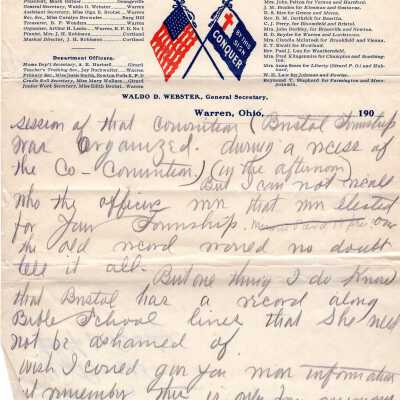 President, Mark Sutliff
General Secretary, Waldo D. Webster, Warren
Assistant Secretary, Miss Olga E. Boslar, Warren
Rec. Sec., Miss Carolyn Brewster, Dairy Hill
Treasurer, D. F. Waldon, Warren
Pianist, Mrs. J. H. Robinson, Cortland
Musical Director, J. H. Robinson, Cortland
Department Officers.
Home Dep't Secretary, A. E. Hartzell, Girard
Teacher's Training Sec., Jay Buchwalter, Warren
Primary Sec., Miss Josie Smith, Newton Falls R. F. D
Cradle Roll Secretary, Miss Mary Wallace, Girard
Junior Work Secretary, Miss Edith Bestal, Warren
BY THIS
SIGN
CONQUER
Mrs. John Patton for Vernon and Hartford.
J. M. Scoles for Kinsman and Gustavus.
S. A. Rice for Greene and Mecca.
Rev. D. M. Derthick for Bazetta
C. J. Perry, for Bloomfield and Bristol.
Mrs. John Dockley, for Braceville and Newton.
H. D. Snyder for Warren and Lordstown.
C. T. Ewalt for Howland.
Mrs. Claudia McIntosh for Brookfield and Vienna.
Rev. Paul J. Gau for Weathersfield.
for Champion and Southington.
Miss Anna Bronn for Liberty (Girard P. O.) and Hubbard.
W. H. Law for Johnson and Fowler.
Raymond T. Shepherd for Farmington and Mesopotamia.
WALDO D. WEBSTER, General Secretary,
Warren, Ohio, 190
session of that Convention (Bristol Township
was organized. during a recess of
the Co-Convention) (in the afternoon)
But I can not recall
who the officers were that were elected
for your Township. our
the old record would no doubt
tell it all.
But one thing I do know
that Bristol has a record along
Bible School lines that she need
not be ashamed of.
wish I could give you more information
but remember this is only